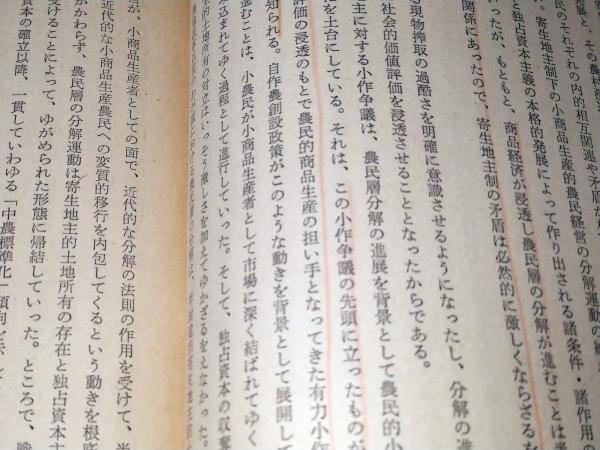 奨と、その農村経済
民のそれぞれの内的相互関連や矛盾が
き。寄生地主制下の小商品生産的農民経営の分解運動の
と独占資本主義の本格的発展によって作り出される諸条件・諸作用の
いったが、もともと、商品経済が浸透し農民層の分解が進むことは
関係にあったので、寄生地主制の矛盾は必然的に激しくならざるを
る現物搾取の過酷さを明確に意識させるようになったし、分解の進
社会的価値評価を浸透させることとなったからである。
主に対する小作争議は、農民層分解の進展を背景として農民的小
を土台にしている。それは、この小作争議の先頭に立ったものが
評価の浸透のもとで農民的商品生産の担い手となってきた有力小作
知られる。自作農創設政策がこのような動きを背景として展開して
進むことは、小農民が小商品生産者として市場に深く結ばれてゆく
込まれてゆく過程として進行していった。そして、独占資本の収奪
的土地所有の対立はいっそう激しさを加えてゆかざるをえなかった。
が、小商品生産者としての面で、近代的な分解の法則の作用を受けて、
近代的な小商品生産農民への変質的移行を内包してくるという動きを根底
かかわらず、農民層の分解運動は寄生地主的土地所有の存在と独占資本主
けることによって、ゆがめられた形態に帰結していった。ところで、
資本の確立以降、一貫していわゆる「中農標準化」傾向を示して